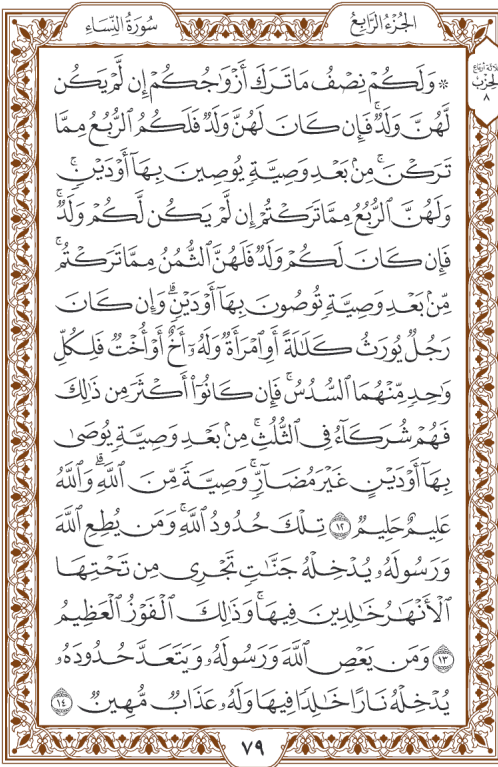 الجُزْءُ الرَّابِعُ
سُورَةُ النِّسَاءِ
ثلاثة أرباع
الحِزْب
٨
۞ وَلَكُمْ نِصْفُ مَا تَرَكَ أَزْوَٰجُكُمْ إِن لَّمْ يَكُن
لَّهُنَّ وَلَدٌ ۚ فَإِن كَانَ لَهُنَّ وَلَدٌ فَلَكُمُ ٱلرُّبُعُ مِمَّا
تَرَكْنَ ۚ مِنۢ بَعْدِ وَصِيَّةٍ يُوصِينَ بِهَآ أَوْ دَيْنٍ ۚ
وَلَهُنَّ ٱلرُّبُعُ مِمَّا تَرَكْتُمْ إِن لَّمْ يَكُن لَّكُمْ وَلَدٌ ۚ
فَإِن كَانَ لَكُمْ وَلَدٌ فَلَهُنَّ ٱلثُّمُنُ مِمَّا تَرَكْتُم ۚ
مِّنۢ بَعْدِ وَصِيَّةٍ تُوصُونَ بِهَآ أَوْ دَيْنٍ ۗ وَإِن كَانَ
رَجُلٌ يُورَثُ كَلَٰلَةً أَوِ ٱمْرَأَةٌ وَلَهُۥٓ أَخٌ أَوْ أُخْتٌ فَلِكُلِّ
وَٰحِدٍ مِّنْهُمَا ٱلسُّدُسُ ۚ فَإِن كَانُوٓا۟ أَكْثَرَ مِن ذَٰلِكَ
فَهُمْ شُرَكَآءُ فِى ٱلثُّلُثِ ۚ مِنۢ بَعْدِ وَصِيَّةٍ يُوصَىٰ
بِهَآ أَوْ دَيْنٍ غَيْرَ مُضَآرٍّ ۚ وَصِيَّةً مِّنَ ٱللَّهِ ۗ وَٱللَّهُ
عَلِيمٌ حَلِيمٌ ١٢ تِلْكَ حُدُودُ ٱللَّهِ ۚ وَمَن يُطِعِ ٱللَّهَ
وَرَسُولَهُۥ يُدْخِلْهُ جَنَّٰتٍ تَجْرِى مِن تَحْتِهَا
ٱلْأَنْهَٰرُ خَٰلِدِينَ فِيهَا ۚ وَذَٰلِكَ ٱلْفَوْزُ ٱلْعَظِيمُ
١٣ وَمَن يَعْصِ ٱللَّهَ وَرَسُولَهُۥ وَيَتَعَدَّ حُدُودَهُۥ
يُدْخِلْهُ نَارًا خَٰلِدًا فِيهَا وَلَهُۥ عَذَابٌ مُّهِينٌ ١٤
٧٩